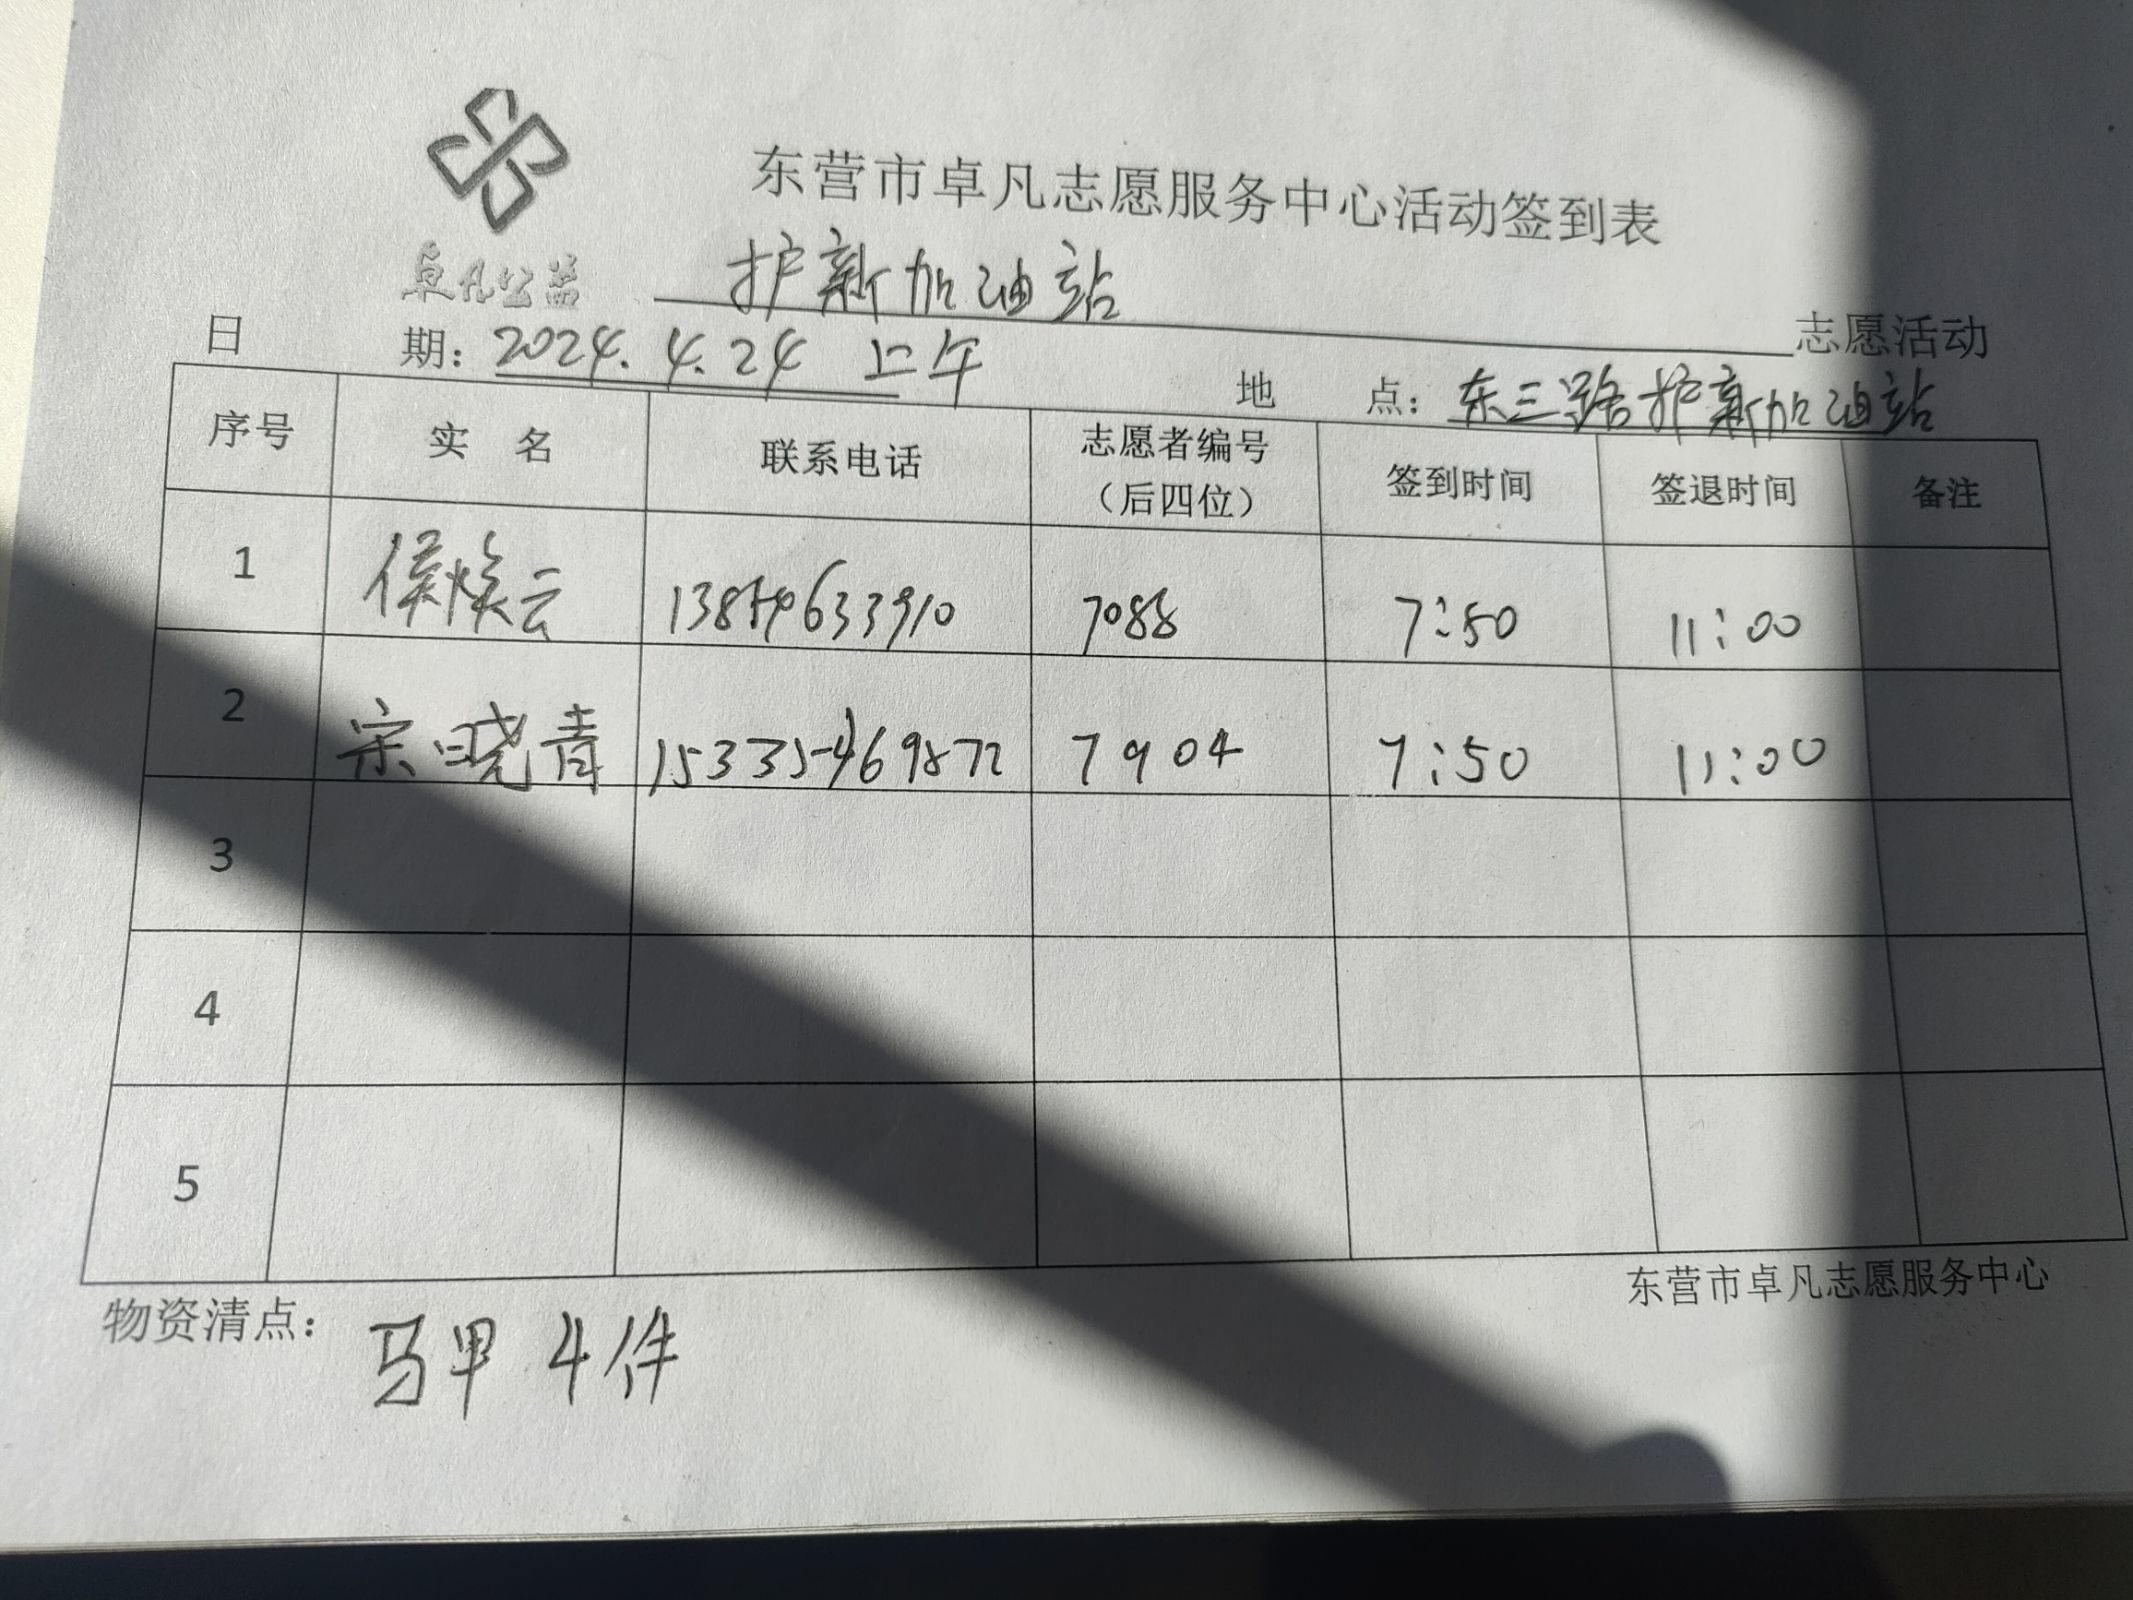 东营市卓凡志愿服务中心活动签到表
卓凡公益
护新加油站 志愿活动
日 期：2024.4.24 上午 地 点：东三路护新加油站
序号 实 名 联系电话 志愿者编号（后四位） 签到时间 签退时间 备注
1 侯焕云 13854633910 7088 7:50 11:00
2 宋晓青 15335469872 7904 7:50 11:00
3
4
5
东营市卓凡志愿服务中心
物资清点：马甲 4件